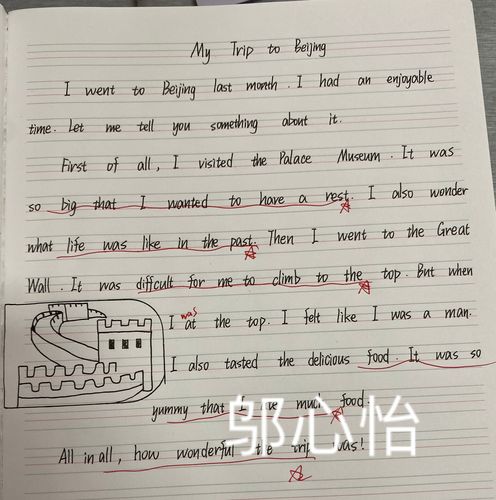 My Trip to Beijing
I went to Beijing last month. I had an enjoyable
time. Let me tell you something about it.
First of all, I visited the Palace Museum. It was
so big that I wanted to have a rest. I also wonder
what life was like in the past. Then I went to the Great
Wall. It was diffcult for me to climb to the top. But when
I was at the top. I felt like I was a man.
I also tasted the delicious food. It was so
yummy that I much food.
All in all, how wonderful the trip was!
邬心怡